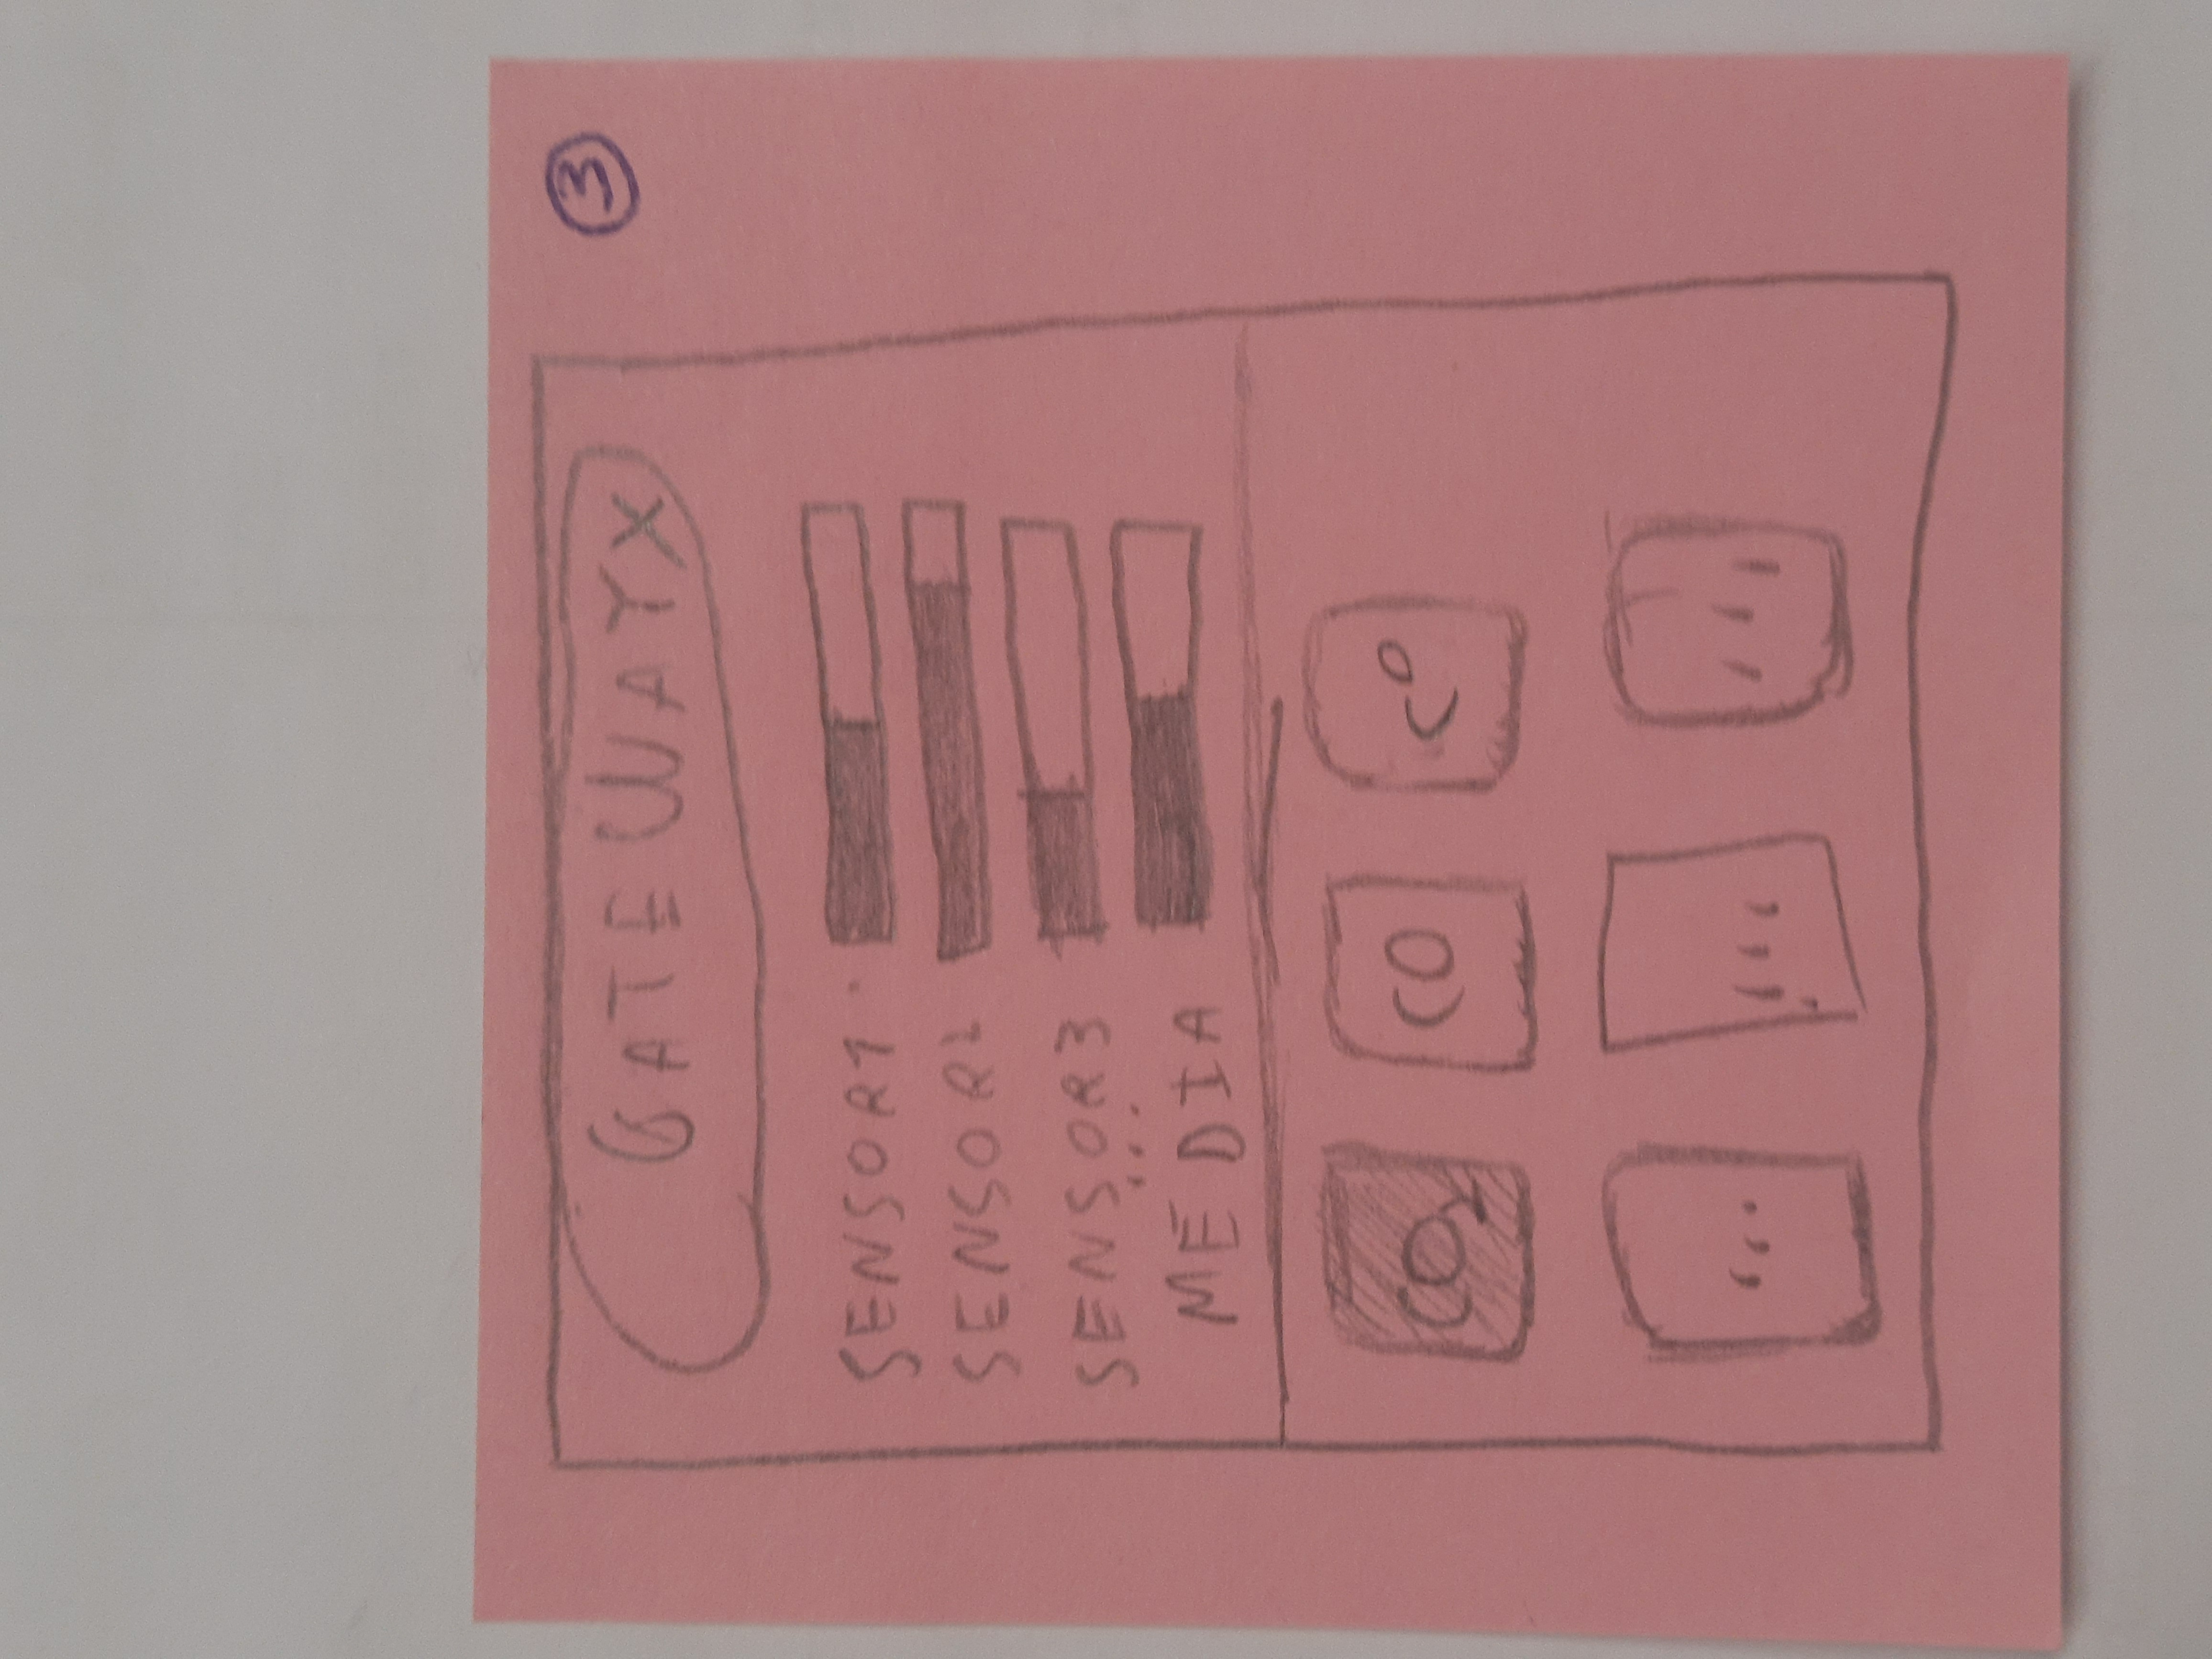 3
GATEWAYX
SENSOR1
SENSOR2
SENSOR3
...
MEDIA
CO2 CO C°
... ... ...